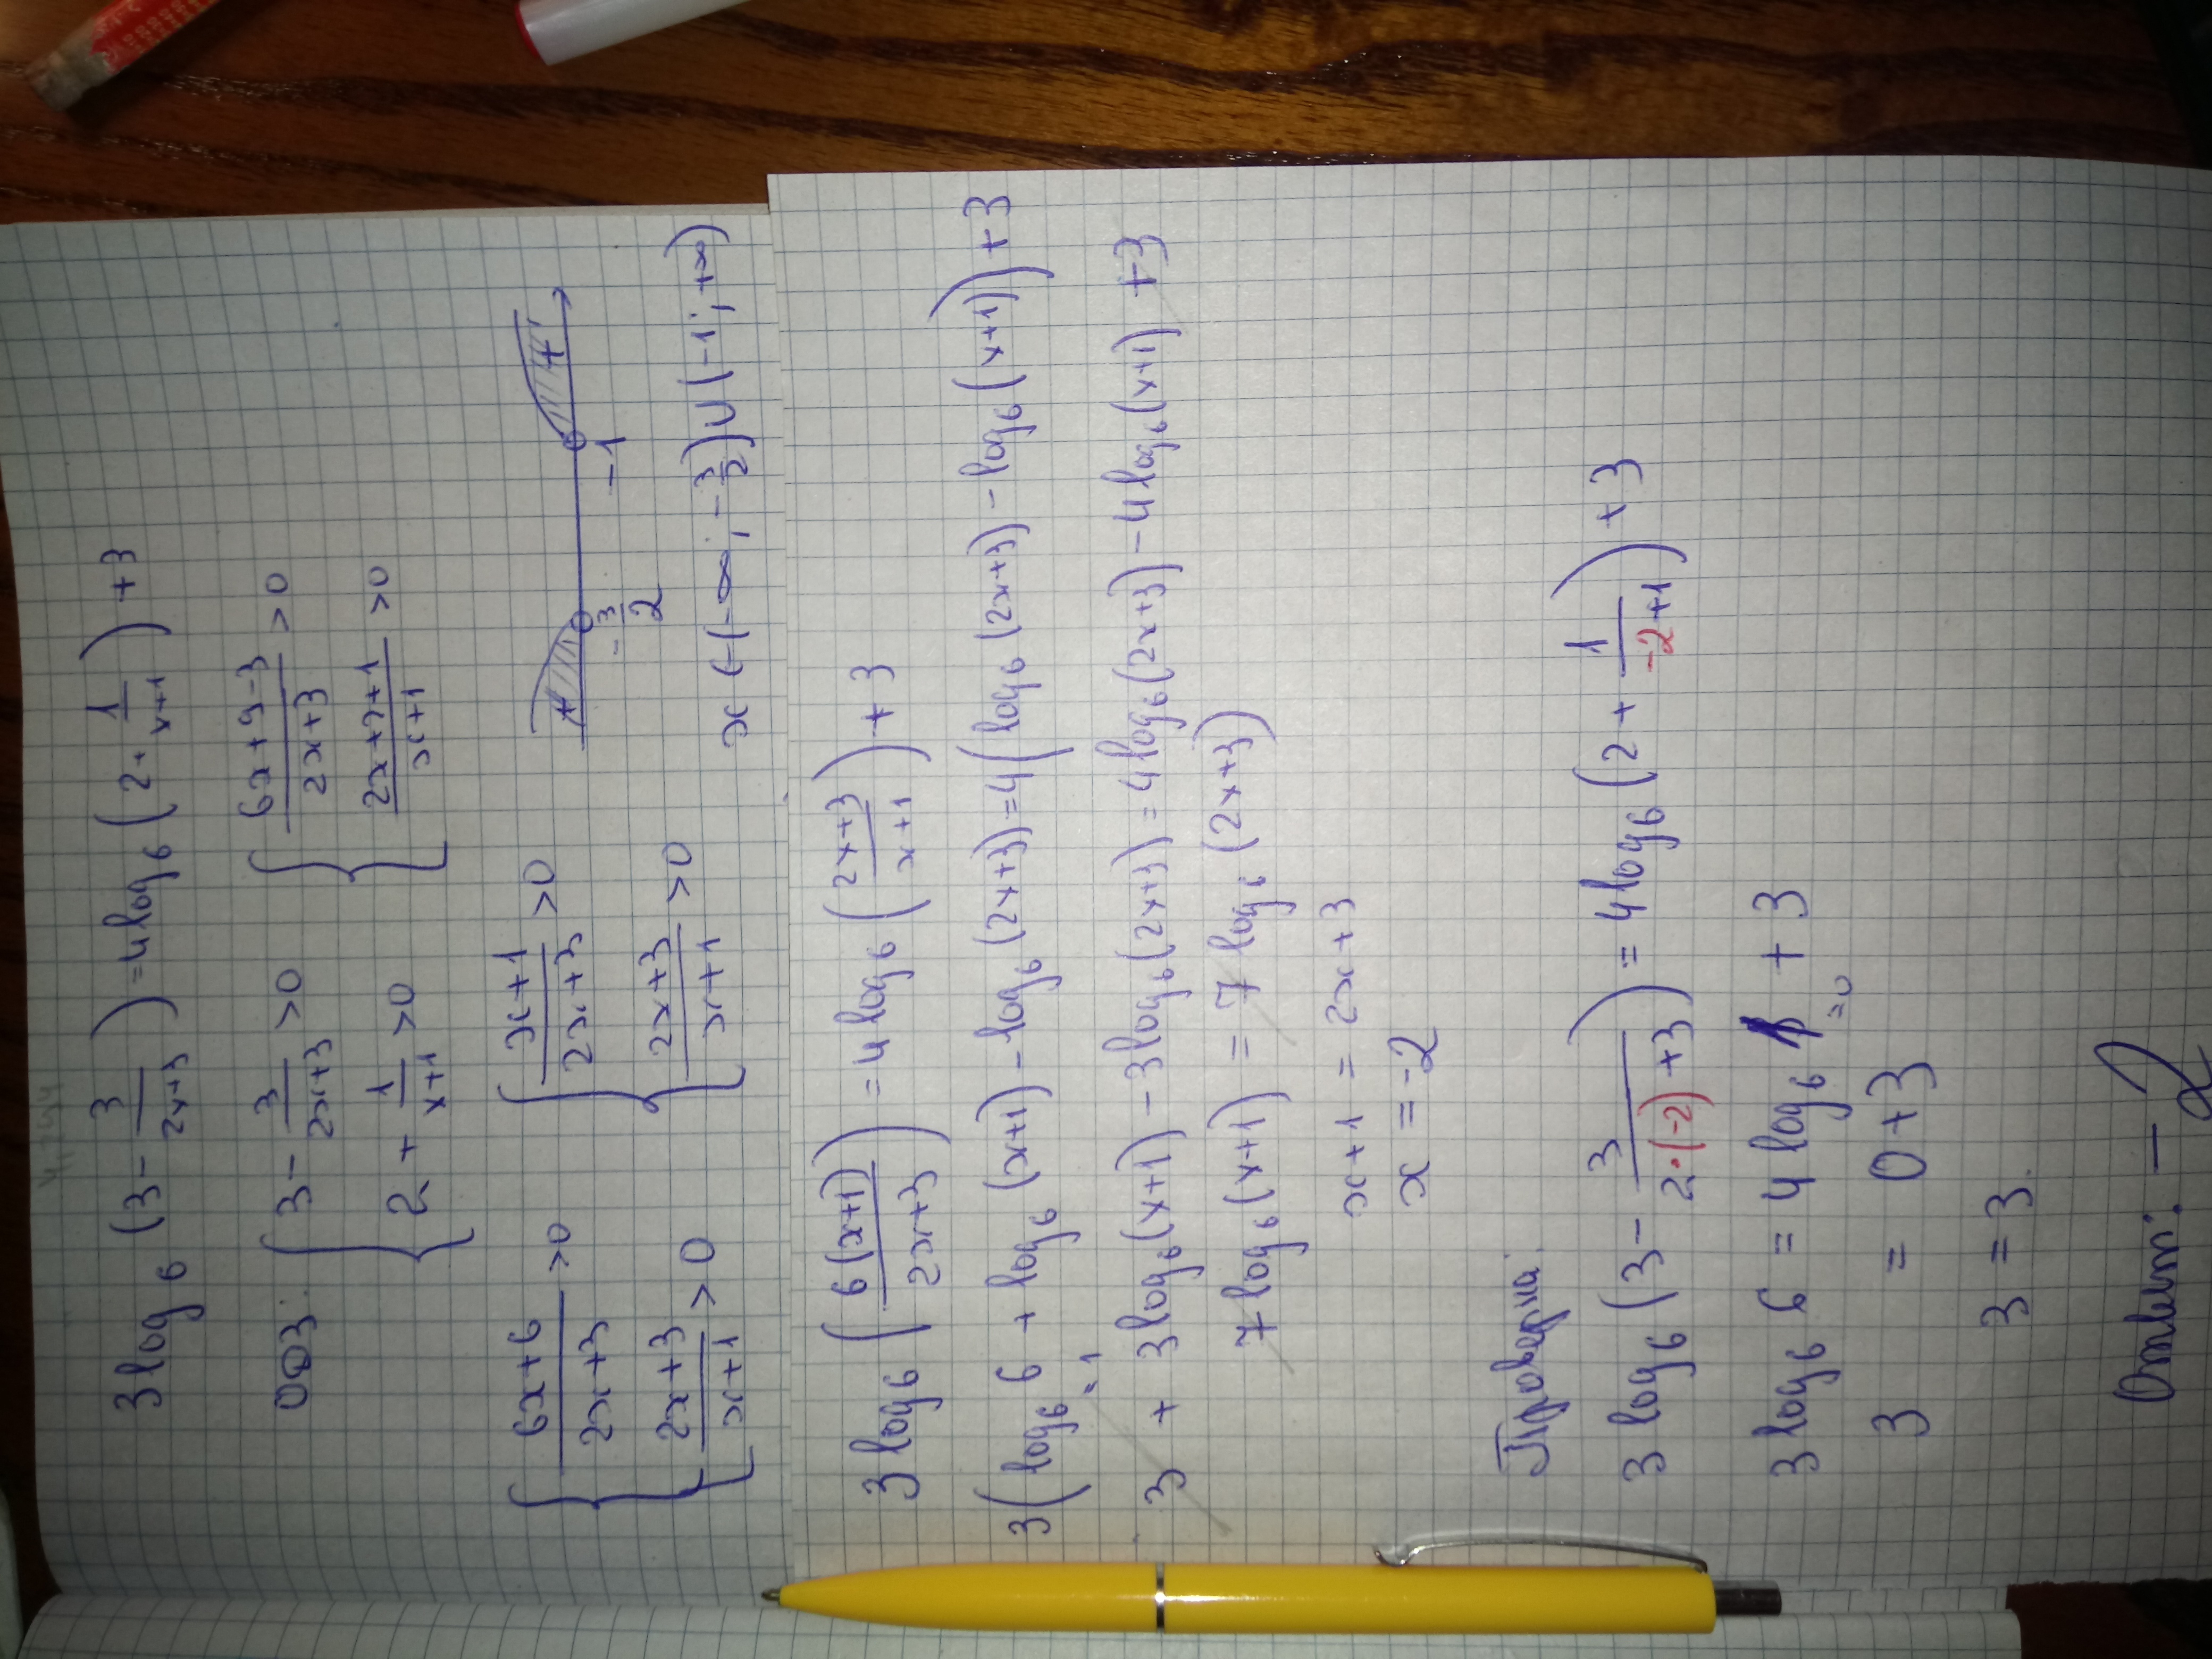 3 log₆ (3 - 3/(2x+3)) = 4 log₆ (2 + 1/(x+1)) + 3
ОДЗ: { 3 - 3/(2x+3) > 0 { (6x+9-3)/(2x+3) > 0
2 + 1/(x+1) > 0 (2x+2+1)/(x+1) > 0
{ (6x+6)/(2x+3) > 0 { (x+1)/(2x+3) > 0 + -3/2 -1 +
(2x+3)/(x+1) > 0 (2x+3)/(x+1) > 0 x ∈ (-∞; -3/2) ∪ (-1; +∞)
3 log₆ (6(x+1)/(2x+3)) = 4 log₆ ((2x+3)/(x+1)) + 3
3(log₆ 6 + log₆ (x+1) - log₆ (2x+3)) = 4(log₆ (2x+3) - log₆ (x+1)) + 3
= 1
3 + 3 log₆ (x+1) - 3 log₆ (2x+3) = 4 log₆ (2x+3) - 4 log₆ (x+1) + 3
7 log₆ (x+1) = 7 log₆ (2x+3)
x+1 = 2x+3
x = -2
Проверка:
3 log₆ (3 - 3/(2·(-2)+3)) = 4 log₆ (2 + 1/(-2+1)) + 3
3 log₆ 6 = 4 log₆ 1 + 3
= 0
3 = 0 + 3
3 = 3
Ответ: -2